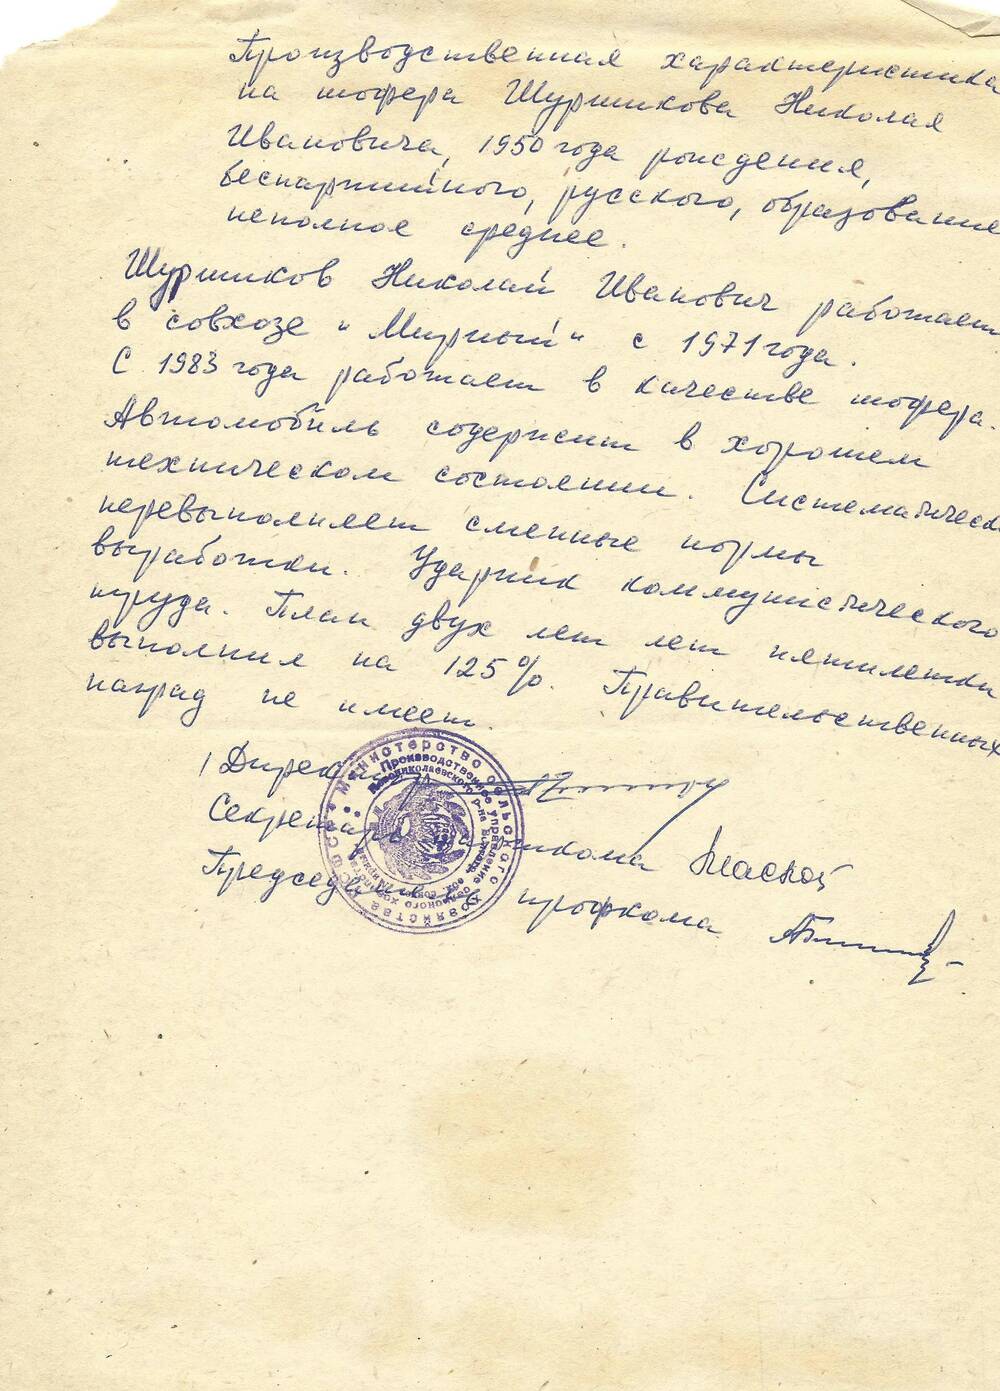 Производственная характеристика
на шофера Шуршикова Николая
Ивановича, 1950 года рождения,
беспартийного, русского, образование
неполное среднее.
Шуршиков Николай Иванович работает
в совхозе "Мирный" с 1971 года.
С 1983 года работает в качестве шофера.
Автомобиль содержит в хорошем
техническом состоянии. Систематически
перевыполняет сменные нормы
выработки. Ударник коммунистического
труда. План двух лет лет пятилетки
выполнил на 125%. Правительственных
наград не имеет.
Директор
Секретарь парткома
Председатель профкома
Министерство сельского хозяйства
Производственное управление
Новониколаевского р-на